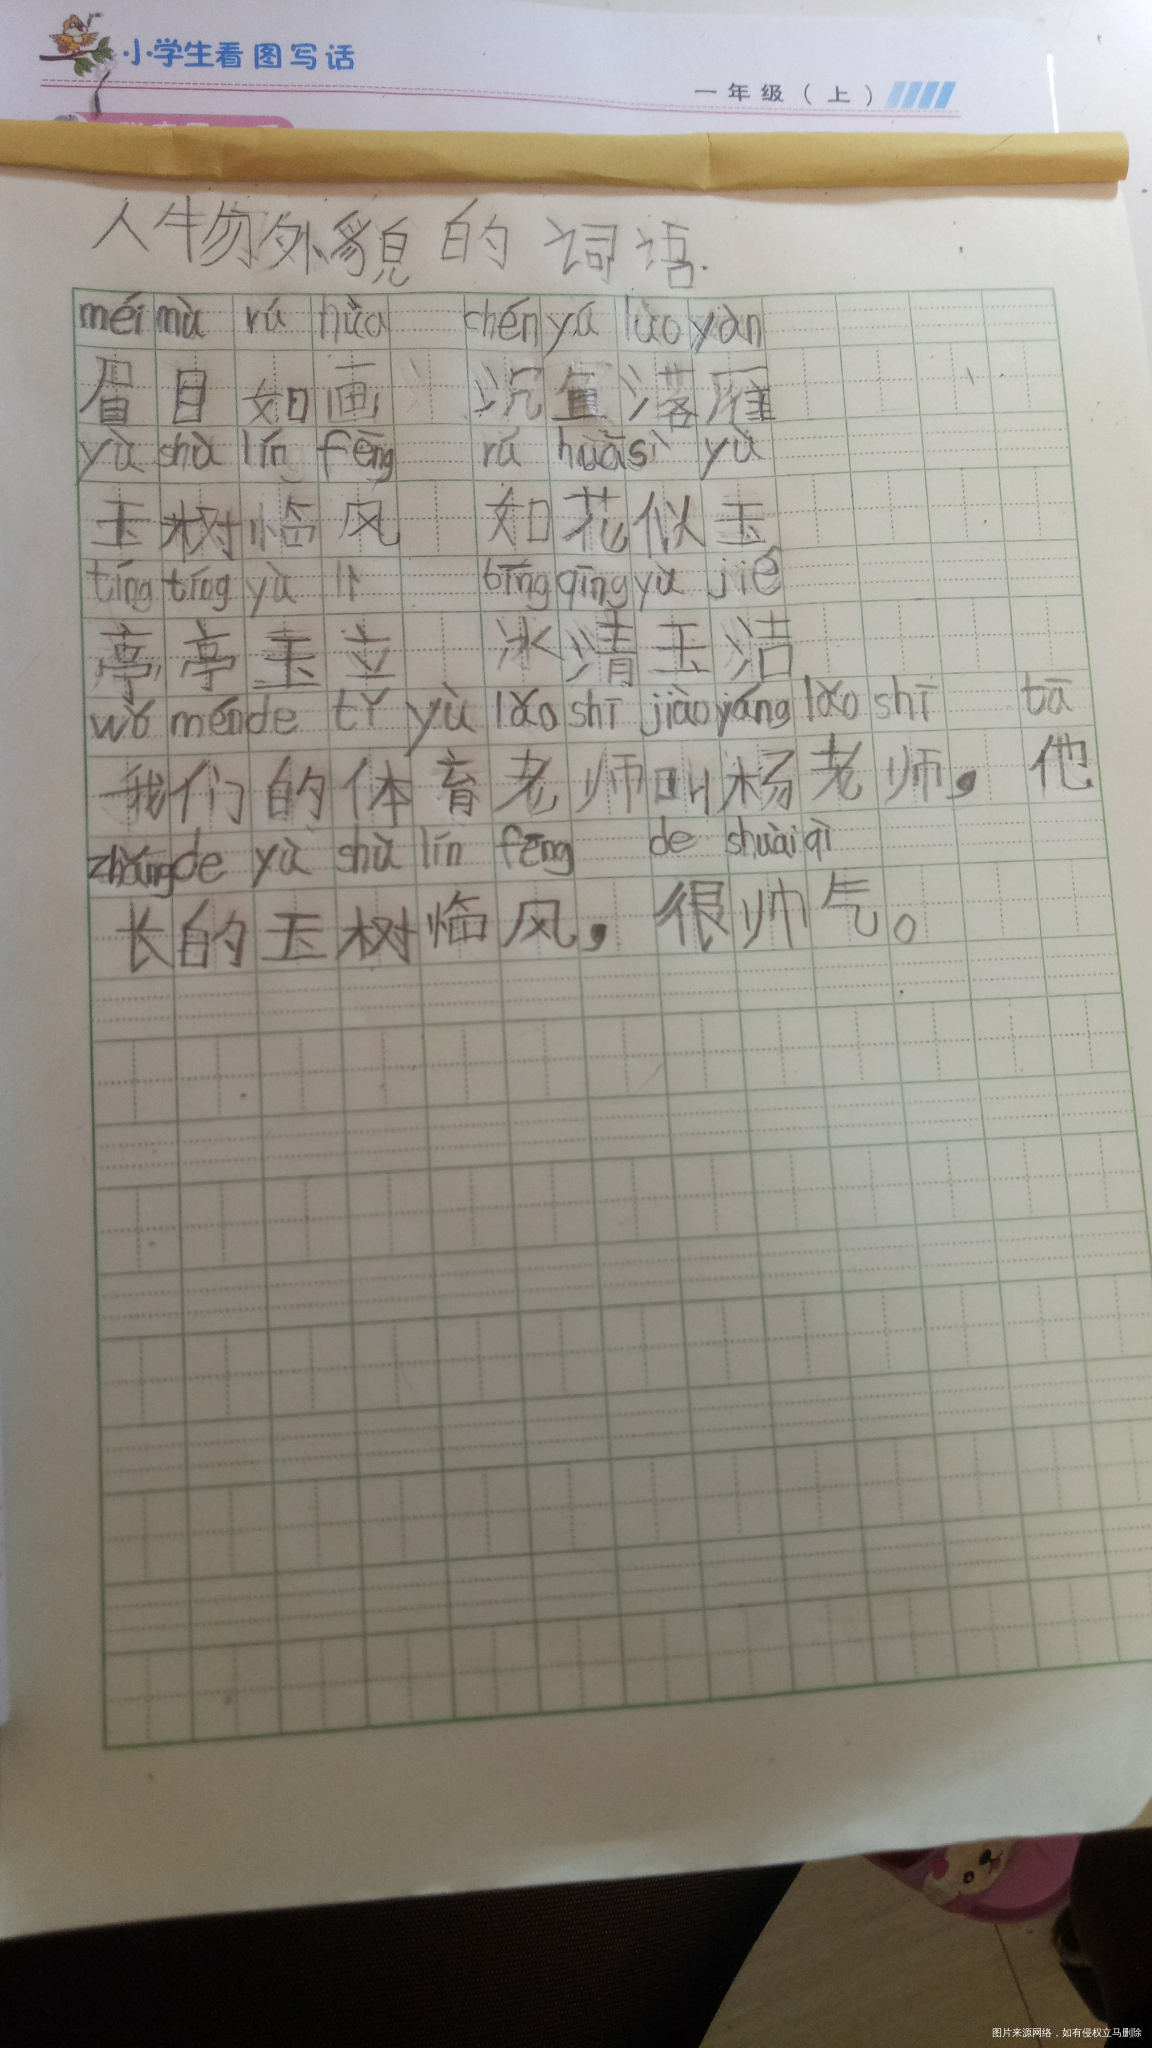 小学生看图写话
一年级（上）
人物外貌的词语.
méi mù rú huà chén yú luò yàn
眉目如画 沉鱼落雁
yù shù lín fēng rú huā sì yù
玉树临风 如花似玉
tíng tíng yù lì bīng qīng yù jié
亭亭玉立 冰清玉洁
wǒ mén de tǐ yù lǎo shī jiào yáng lǎo shī tā
我们的体育老师叫杨老师，他
zhǎng de yù shù lín fēng de shuài qì
长的玉树临风，很帅气。
图片来源网络，如有侵权立马删除